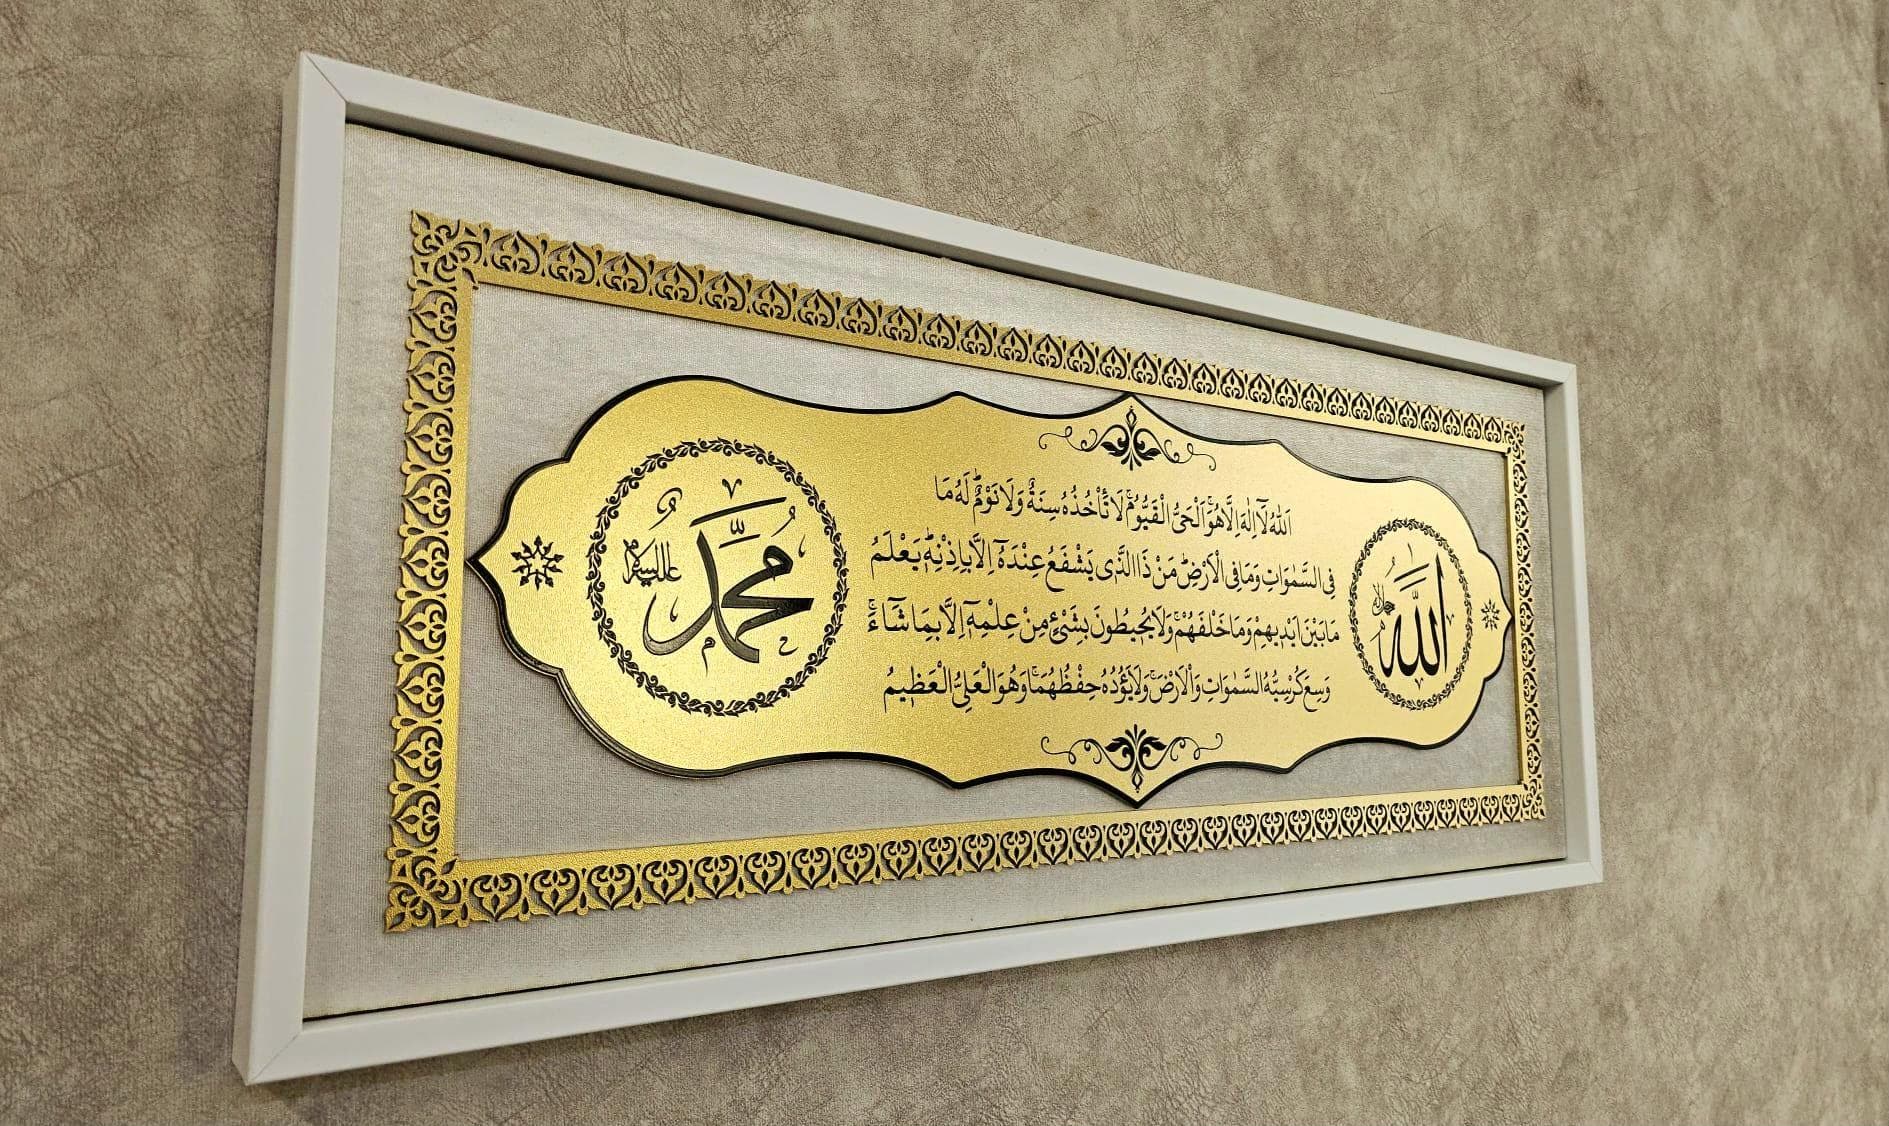 الله
جل جلاله
اَللّٰهُ لَٓا اِلٰهَ اِلَّا هُوَۚ اَلْحَيُّ الْقَيُّومُۚ لَا تَأْخُذُهُ سِنَةٌ وَلَا نَوْمٌۜ لَهُ مَا
فِي السَّمٰوَاتِ وَمَا فِي الْاَرْضِۜ مَنْ ذَا الَّذٖي يَشْفَعُ عِنْدَهُٓ اِلَّا بِاِذْنِهٖۜ يَعْلَمُ
مَا بَيْنَ اَيْدٖيهِمْ وَمَا خَلْفَهُمْۚ وَلَا يُحٖيطُونَ بِشَيْءٍ مِنْ عِلْمِهٖٓ اِلَّا بِمَا شَٓاءَۚ
وَسِعَ كُرْسِيُّهُ السَّمٰوَاتِ وَالْاَرْضَۚ وَلَا يَؤُدُهُ حِفْظُهُمَاۚ وَهُوَ الْعَلِيُّ الْعَظٖيمُ
محمد
عليه السلام